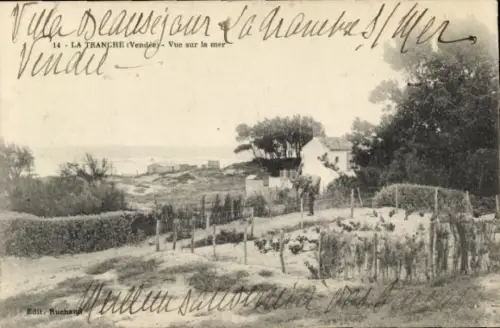 Villa Beauséjour La Tranche s/Mer
14 - LA TRANCHE (Vendée) - Vue sur la mer
Vendée
Meilleurs souvenirs
Edit. Rochaud